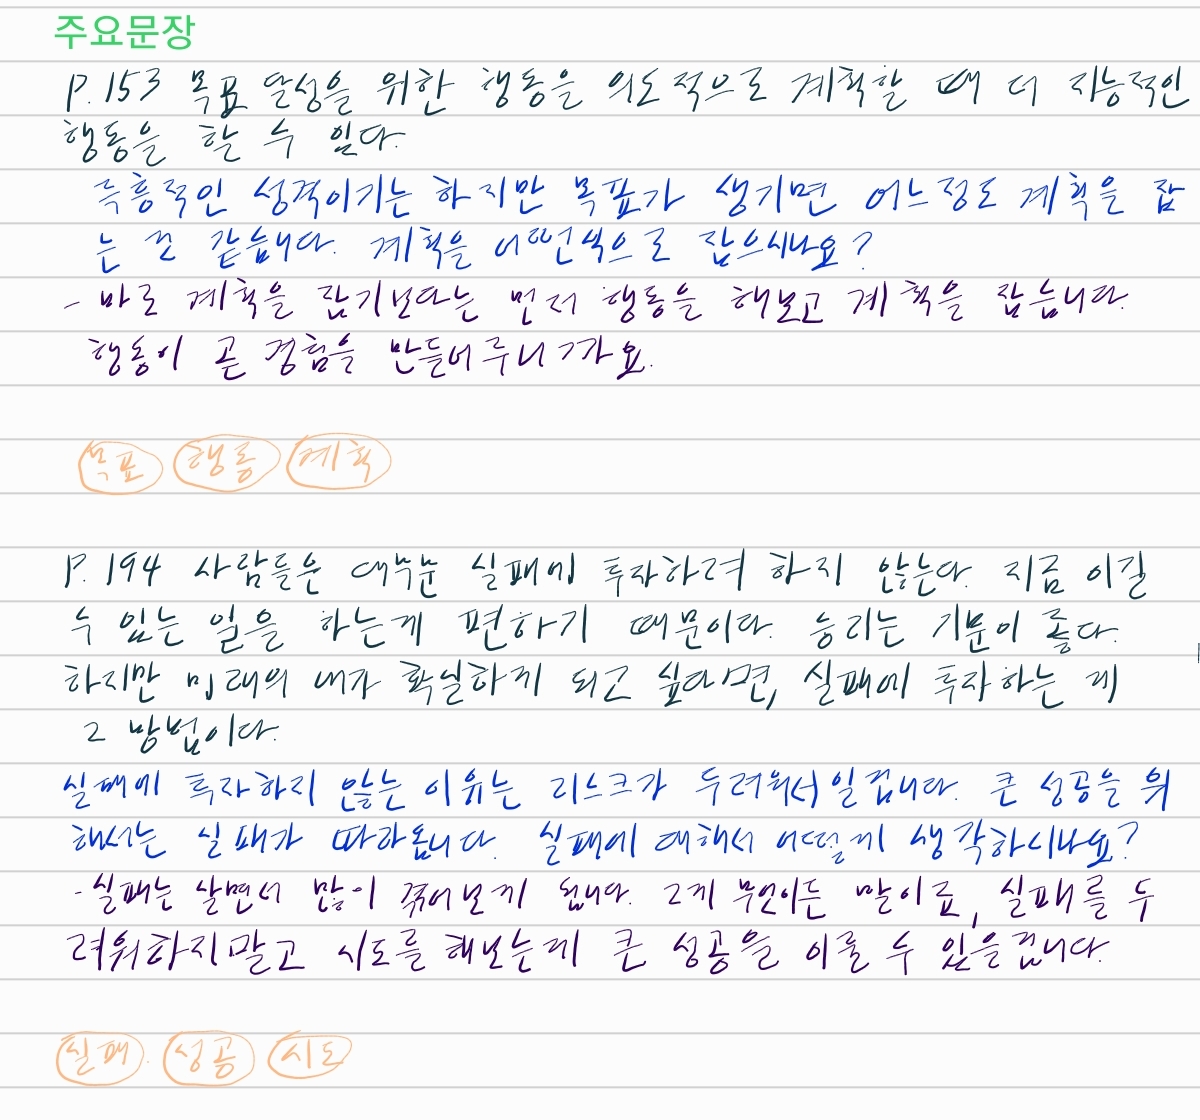 주요문장
P.153 목표 달성을 위한 행동을 의도적으로 계획할 때 더 지능적인
행동을 할 수 있다.
즉흥적인 성격이기는 하지만 목표가 생기면 어느정도 계획을 잡
는 것 같습니다. 계획을 어떤식으로 잡으시나요?
- 바로 계획을 잡기보다는 먼저 행동을 해보고 계획을 잡습니다.
행동이 곧 경험을 만들어주니까요.
목표 행동 계획
P.194 사람들은 대부분 실패에 투자하려 하지 않는다. 지금 이길
수 있는 일을 하는게 편하기 때문이다. 승리는 기분이 좋다.
하지만 미래의 내가 확실하게 되고 싶다면, 실패에 투자하는 게
그 방법이다.
실패에 투자하지 않는 이유는 리스크가 두려워서일겁니다. 큰 성공을 위
해서는 실패가 따라옵니다. 실패에 대해서 어떻게 생각하시나요?
- 실패는 살면서 많이 겪어보게 됩니다. 그게 무엇이든 말이죠, 실패를 두
려워하지말고 시도를 해보는게 큰 성공을 이룰 수 있을겁니다.
실패 성공 시도